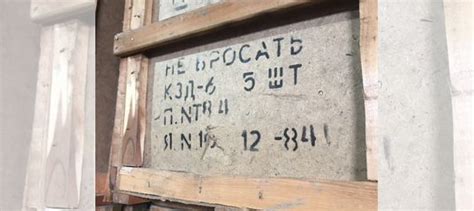 НЕ БРОСАТЬ
КЗД-6 5 ШТ
П.NТВ4
Я.N.16 12-84